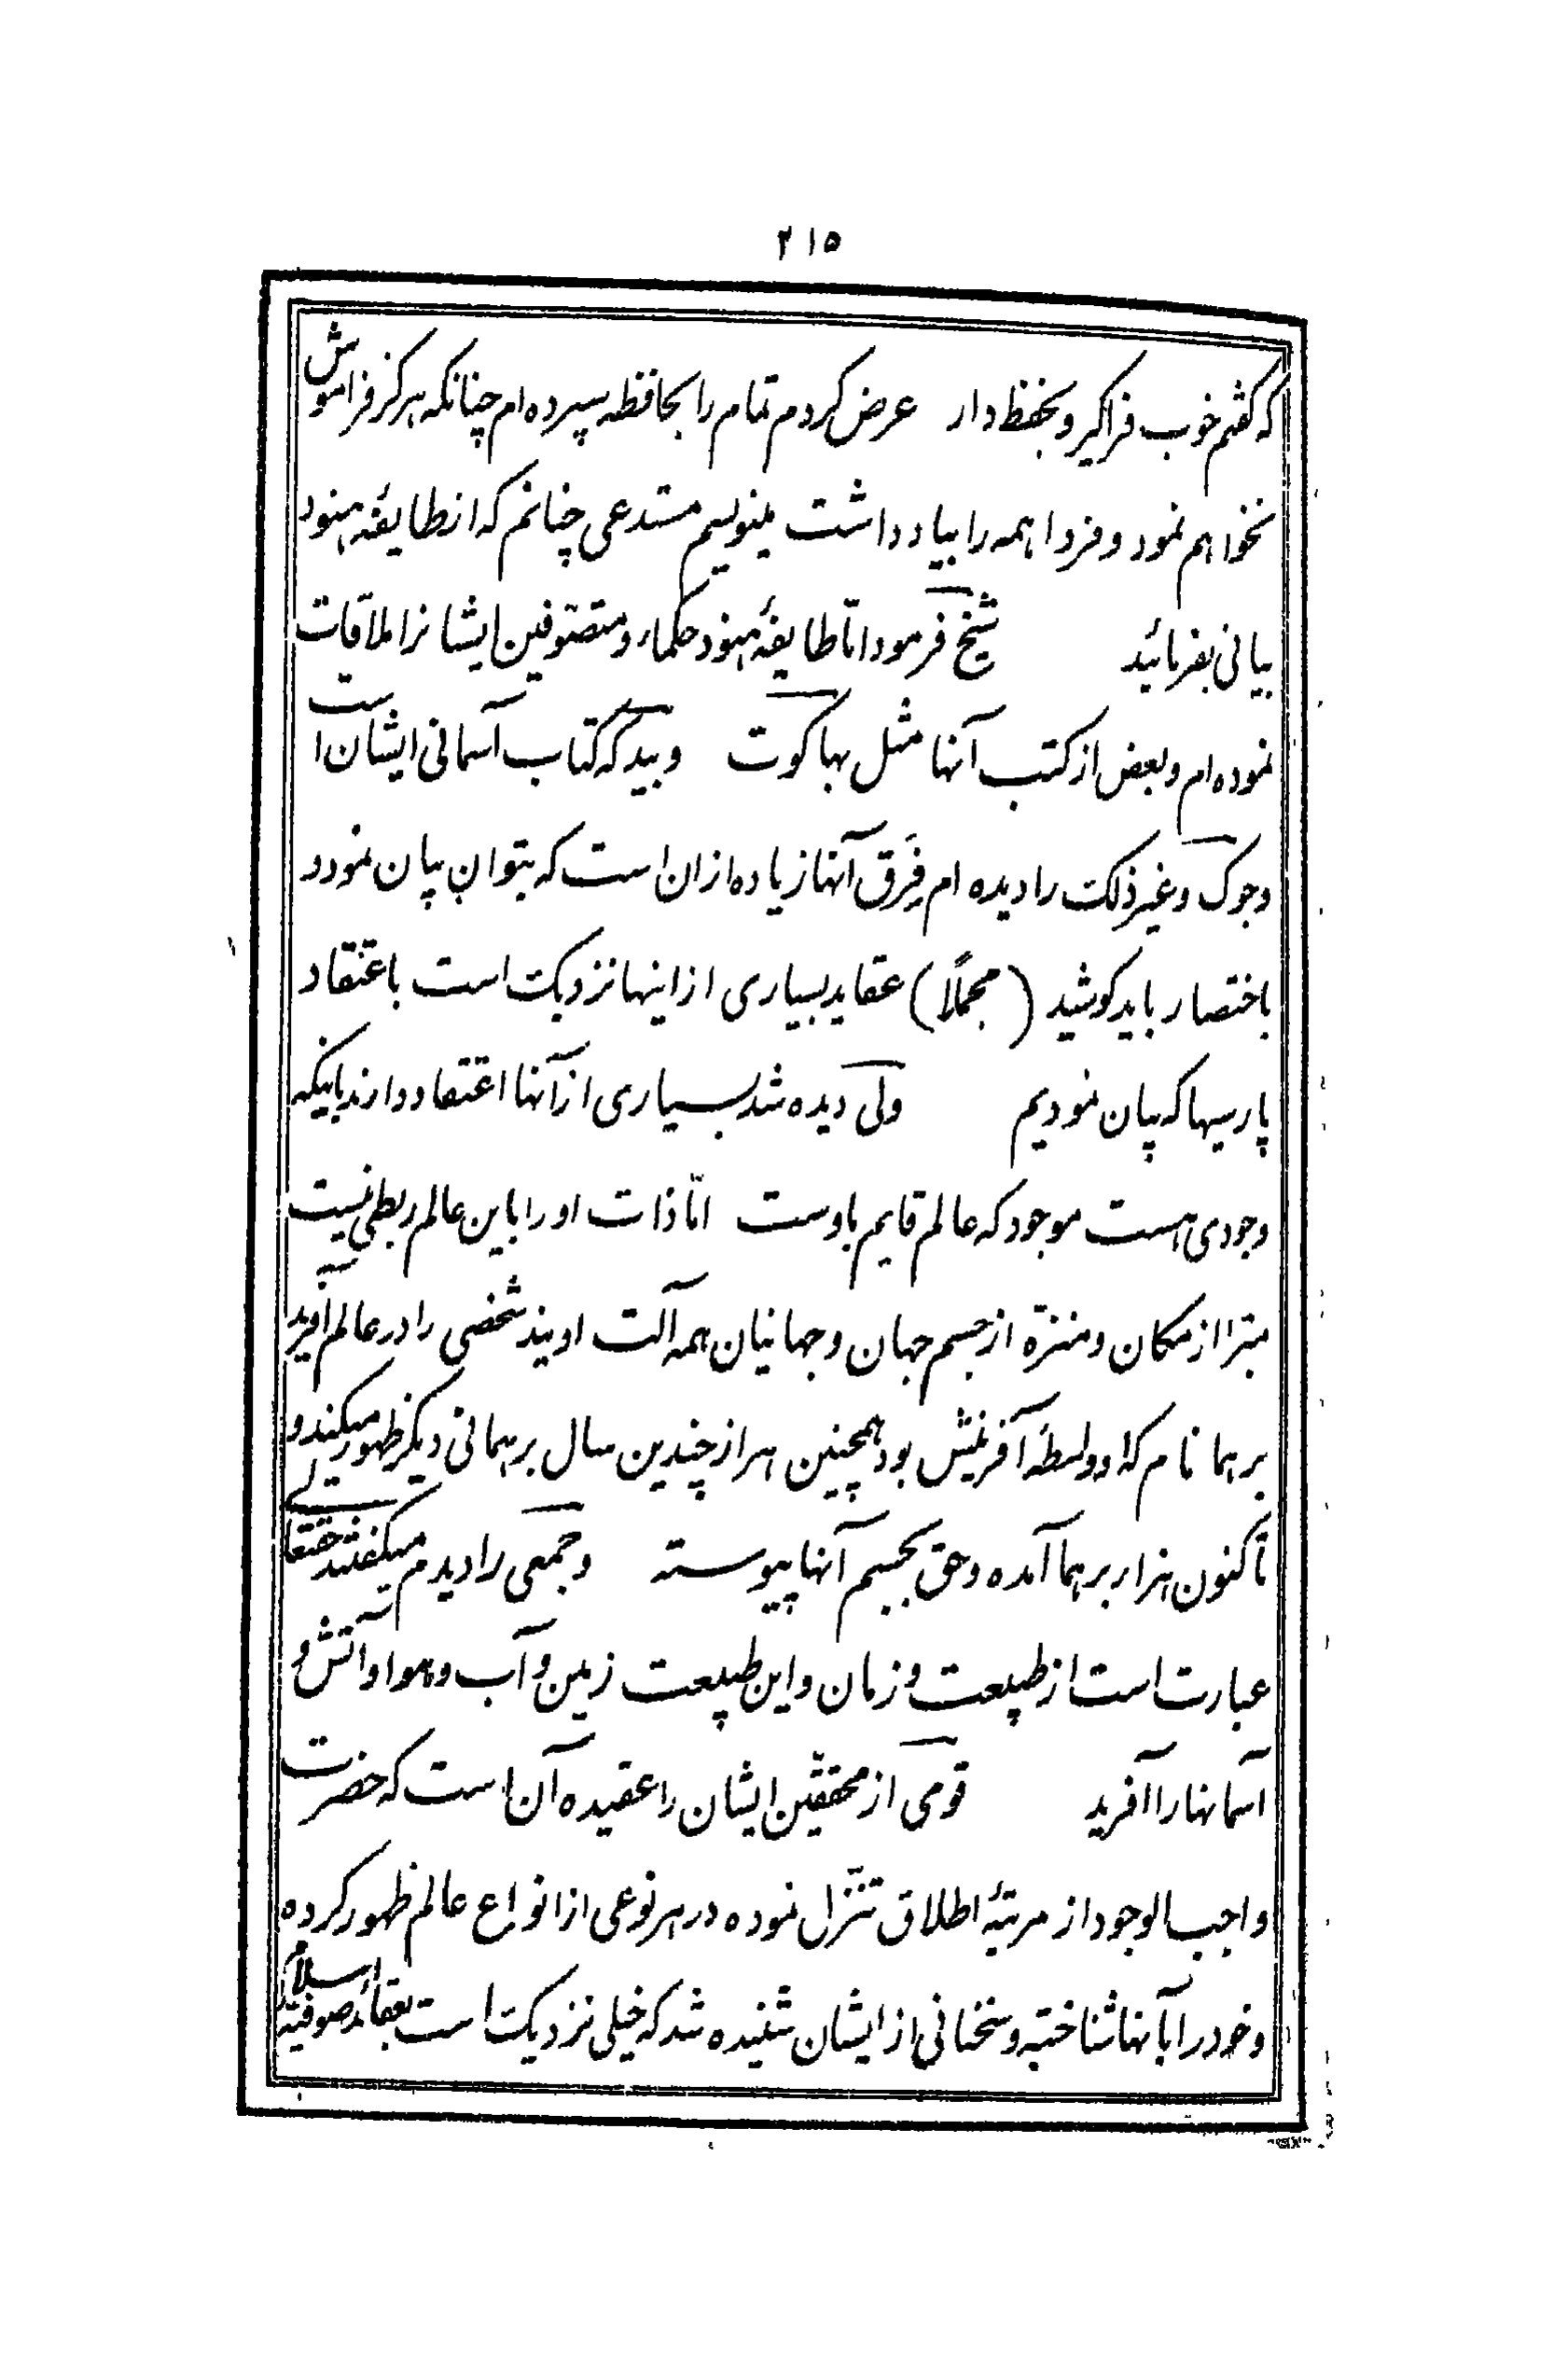 ۲۱۵
که گفتم خوب فراگیر و بحفظ دار عرض کردم تمام را بحافظه سپرده‌ام چنانکه هرگز فراموش
نخواهم نمود و فردا همه را بیادداشت بنویسیم مستدعی چنانم که از طایفهٔ هنود
بیانی بفرمائید شیخ فرمود امّا طایفهٔ هنود حکماء و متصوّفین ایشانرا ملاقات
نموده‌ام و بعض از کتب آنها مثل بهاکوت و بید که کتاب آسمانی ایشان است
و جوک و غیر ذلک را دیده ام فِرَق آنها زیاده از ان است که بتوان بیان نمود و
باختصار باید کوشید (مجملاً) عقاید بسیاری از اینها نزدیک است باعتقاد
پارسیها که بیان نمودیم ولی دیده شد بسیاری از آنها اعتقاد دارند باینکه
وجودی هست موجود که عالم قایم باوست امّا ذات او را باین عالم ربطی نیست
مبرّا از مکان و منزّه از جسم جهان و جهانیان همه آلت اویند شخصی را در عالم آفرید
برهما نام که او واسطهٔ آفرینش بود همچنین هر از چندین سال برهمائی دیگر ظهور میکند و
تاکنون هزار برهما آمده و حق بجسم آنها پیوسته و جمعی را دیدم میگفتند حقتعالی
عبارت است از طبیعت و زمان و این طبیعت زمین و آب و هوا و آتش و
آسمانها را آفرید قومی از محققّین ایشان را عقیده آن است که حضرت
واجب الوجود از مرتبهٔ اطلاق تنزّل نموده در هر نوعی از انواع عالم ظهور کرده
و خود را بآنها شناخته و سخنانی از ایشان شنیده شد که خیلی نزدیک است بعقائد صوفیّهٔ اسلام